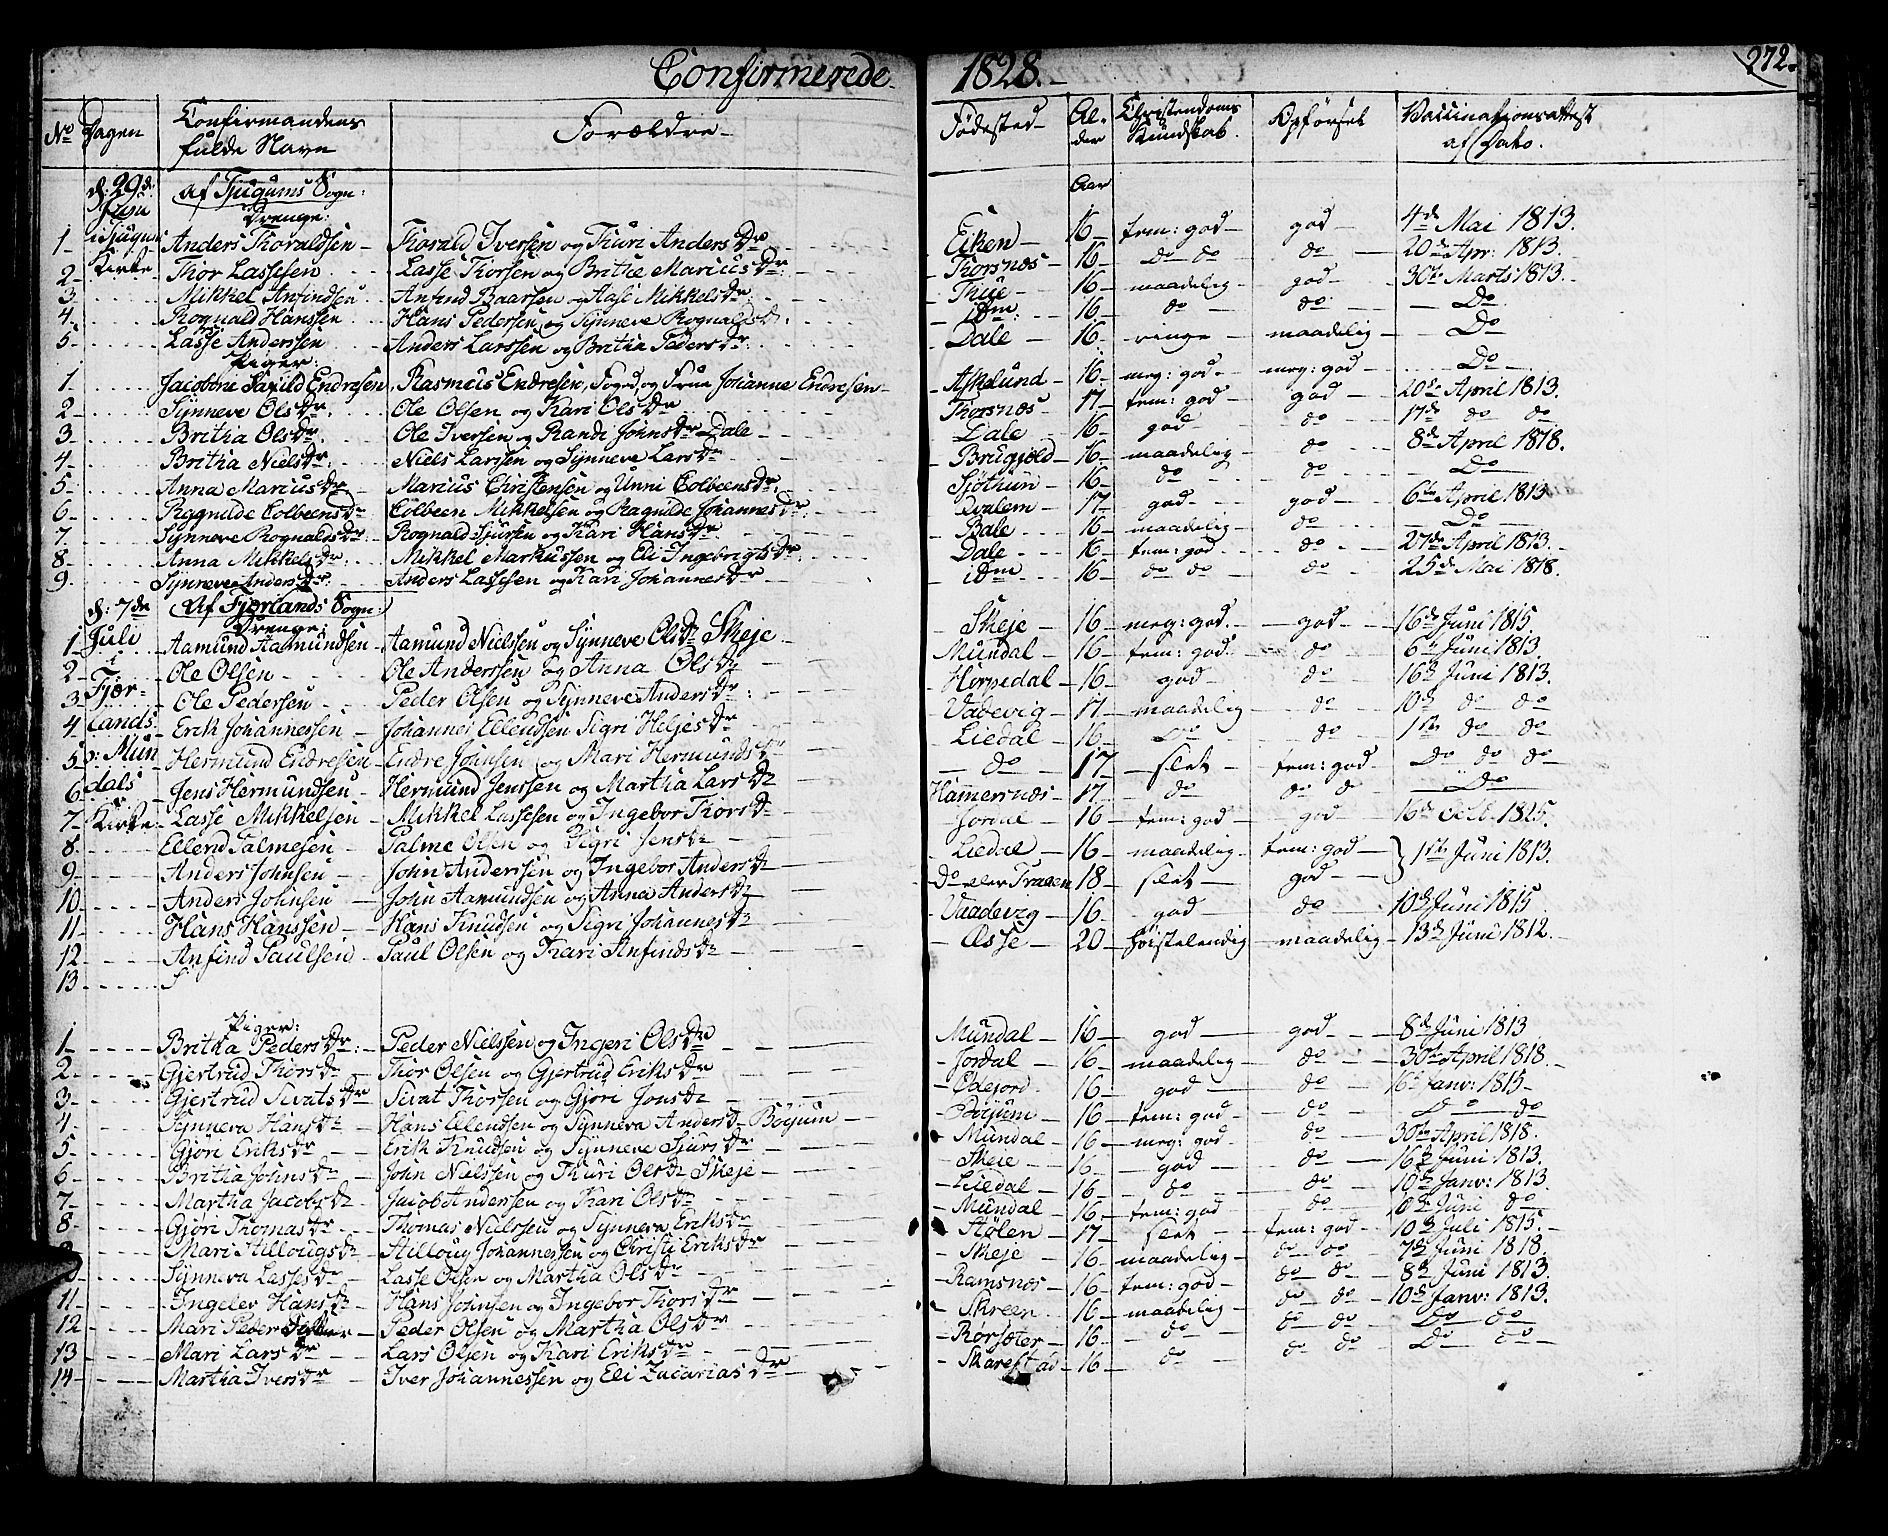 Confirmerede 1828. 272.
No Dagen Confirmandens fulde Navn Forældre Fødested Alder Christendoms Kundskab. Opførsel Vaccinationsattest af Dato.
d: 29de Juni i Tjugums Kirke af Tjugums Sogn: Aar
Drenge:
1 Anders Thoraldsen Thorald Iversen og Thuri Andersdr Eiken 16 tem: god god 4de Mai 1813.
2 Thor Lassesen Lasse Thorsen og Brithe Mariusdr Thorsnæs 16 do do do 20de Apr: 1813.
3 Mikkel Anfindsen Anfind Baarsen og Aase Mikkelsdr Thue 16 maadelig god 30te Marts 1813.
4 Rognald Hanssen Hans Pedersen og Synneve Rognaldsd. idm 16 do do Do
5 Lasse Anderssen Anders Larssen og Britha Pedersdr Dale 16 ringe maadelig Do
Piger:
1 Jacobine Endresen Rasmus Endresen, Foged, og Frue Johanne Endresen Askelund 16 meg: god meg: god Do
2 Synneve Olsdr Ole Olsen og Kari Olsdr Thorsnæs 17 tem: god god 20de April 1813.
3 Britha Olsdr Ole Iversen og Randi Johnsdr Dale Dale 16 god do 17de do do
4 Britha Nielsdr Niels Larssen og Synneve Larsdr 16 maadelig do 8de April 1818.
5 Anna Mariusdr Marius Christensen og Unni Colbeensdr Sjøthun 16 do do Do
6 Ragnilde Colbeensdr Colbeen Mikkelsen og Ragnilde Johannesdr Qvalem 17 god god 6te April 1813
7 Synneve Rognaldsdr Rognald Sjursen og Kari Hansdr Bale 16 maadelig do Do
8 Anna Mikkelsdr Mikkel Markussen og Eli Ingebrigtsdr Dale 16 tem: god do 27de April 1813.
9 Synneve Andersdr Anders Lassesen og Kari Johannesdr idm 16 do do do 25de Mai 1818.
d: 7de Juli i Fjærlands s: Mundals Kirke Af Fjærlands Sogn:
Drenge:
1 Aamund Aamundsen Aamund Nielssen og Synneve Olsdr Skeje Skeje 16 meg: god god 16de Juni 1815.
2 Ole Olsen Ole Anderssen og Anna Olsdr Mundal 16 tem: god do 6te Juni 1813.
3 Ole Pedersen Peder Olsen og Synneve Andersdr Horpedal 16 god do 16de Juni 1813.
4 Erik Johannessen Johannes Ellendsen Sigri Heljesdr Vadevig 17 maadelig do 10de do do
5 Hermund Endresen Endre Johnsen og Mari Hermundsdr Liedal 16 Do do 1ste do do
6 Jens Hermundsen Hermund Jenssen og Martha Larsdr do 17 slet tem: god Do do do
7 Lasse Mikkelsen Mikkel Lassesen og Ingebor Thorsdr Hamersnæs 17 do do do Do
8 Ellend Palmesen Palme Olsen og Sigri Jensdr Jordal 16 tem: god god 16de Octb. 1825.
9 Anders Johnsen John Anderssen og Ingebor Andersdr Liedal 16 maadelig tem: god } 1ste Juni 1813.
10 Anders Johnsen John Aamundsen og Anna Andersdr Do eller 18 slet god
11 Hans Hanssen Hans Knudsen og Sigri Johannesdr Vaadevig 16 god do 10de Juni 1815
12 Anfind Paulsen Paul Olsen og Kari Anfindsdr Øsse 20 høistelendig maadelig 13de Juni 1812.
13
Piger:
1 Britha Pedersdr Peder Nielssen og Ingeri Olsdr Mundal 16 god god 8de Juni 1813
2 Gjertrud Thorsdr Thor Olsen og Gjertrud Eriksdr Jordal 16 maadelig do 30te April 1818.
3 Gjertrud Sivatsdr Sivat Thorsen og Gjøri Jonsdr Ødejord 16 god do 16de Janv: 1815
4 Synneva Hansdr Hans Ellendsen og Synneva Andersdr Bøyum Bøyum 16 tem: god do Do do
5 Gjøri Eriksdr Erik Knudsen og Synneve Sjursdr Mundal 16 meg: god do 30te April 1818.
6 Britha Johnsdr John Nielssen og Thuri Olsdr Skeje Skeie 16 god do 16de Juni 1813.
7 Martha Jacobsdr Jacob Andersen og Kari Olsdr Liedal 16 do do 10de Janv: 1813.
8 Gjøri Thomasdr Thomas Nielssen og Synneva Eriksdr Mundal 16 tem: god do Juni do
Mari Hillougsdr Hilloug Johannessen og Christi Eriksdr Stølen 17 slet tem: god 10de Juli 1815.
Synneva Lassesdr Lasse Olsen og Martha Olsdr Skeje 16 maadelig do do 7de Juni 1818.
11 Ingelev Hansdr Hans Johnsen og Ingebor Thorsdr Ramsnæs 16 tem: god do do 8de Juni 1813
12 Mari Pedersdatter Peder Olsen og Martha Olsdr Skreen 16 maadelig do do 10de Janv: 1813.
13 Mari Larsdr Lars Olsen og Kari Eriksdr Rørsæter 16 do do do Do do
14 Martha Iversdr Iver Johannessen og Eli Zacariasdr Skarestad 16 do do do Do do